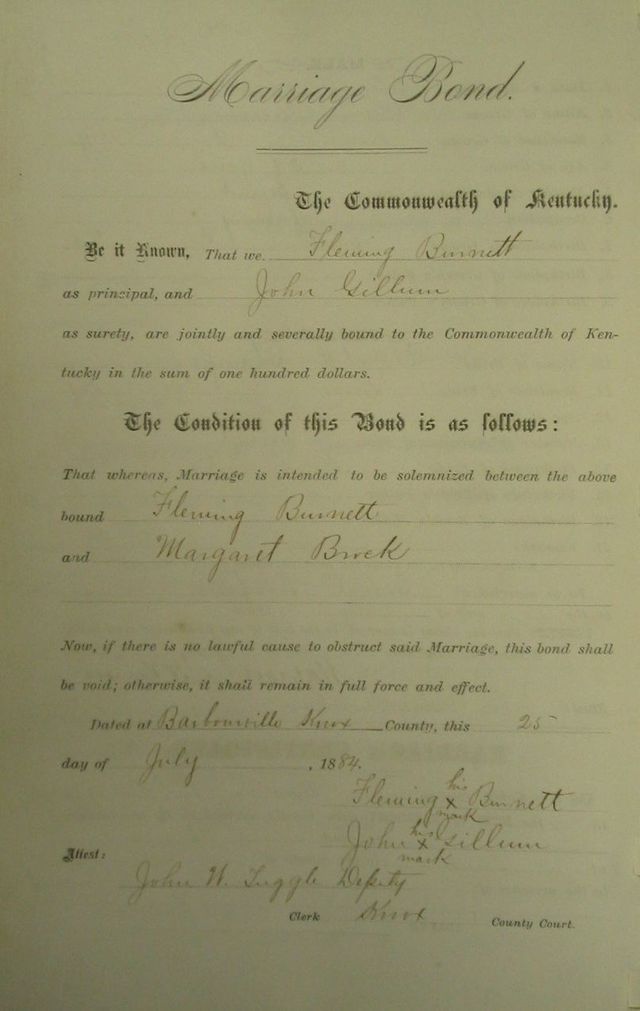 Marriage Bond.
The Commonwealth of Kentucky.
Be it Known, That we Fleming Burnett
as principal, and John Gillum
as surety, are jointly and severally bound to the Commonwealth of Ken-
tucky in the sum of one hundred dollars.
The Condition of this Bond is as follows:
That whereas, Marriage is intended to be solemnized between the above
bound Fleming Burnett
and Margaret Brock
Now, if there is no lawful cause to obstruct said Marriage, this bond shall
be void; otherwise, it shall remain in full force and effect.
Dated at Barbourville Knox County, this 25
day of July, 1884.
Fleming his x mark Burnett
John his x mark Gillum
Attest:
John H. Tuggle Deputy
Clerk Knox County Court.